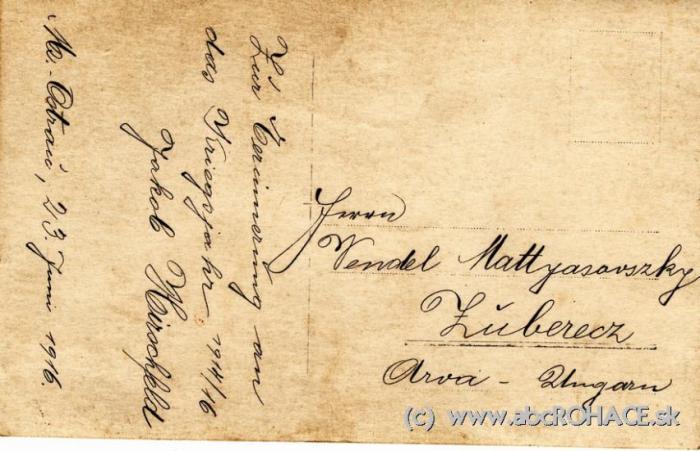 Zur Erinnerung an
das Kriegsjahr 1914/16
Jakob Hirschfeld
Mr.-Ostrau, 23. Juni 1916.
Herrn
Vendel Mattyasovszky
Zuberecz
Arva - Ungarn
(c) www.abcROHACE.sk